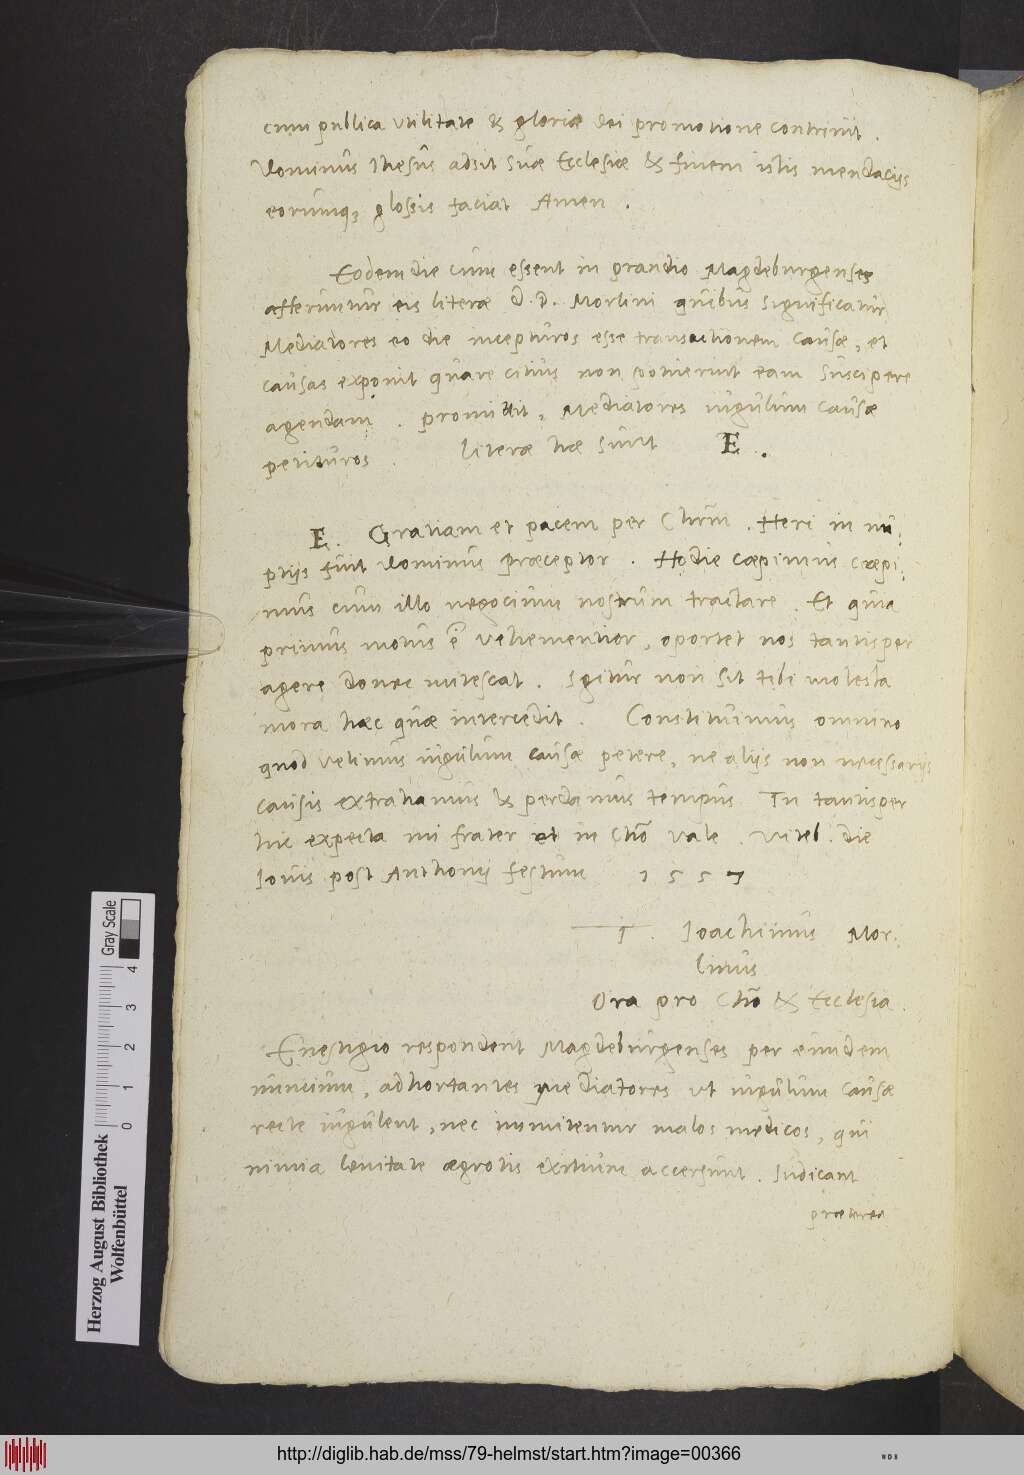 cum publica utilitate & gloria dei promotione contrivit.
Dominus Ihesus adsit suæ Ecclesiæ & finem istis mendacijs
eorumq; glossis faciat Amen.
Eodem die cum essent in prandio Magdeburgenses
afferuntur eis literæ D. D. Morlini quibus significatur
Mediatores eo die incepturos esse transactionem causæ, et
causas exponit quare citius non potuerunt eam suscipere
agendam. promittit, Mediatores iugulum causæ
petituros. Literæ hæ sunt E.
E. Gratiam et pacem per Chrm. Heri in nu:
ptijs fuit Dominus præceptor. Hodie cæpimus cæpi:
mus cum illo negocium nostrum tractare. Et quia
primus motus ē vehementior, oportet nos tantisper
agere donec mitescat. Igitur non sit tibi molesta
mora hæc quæ intercedit. Constituimus omnino
quod velimus iugulum causæ petere, ne alijs non necessarijs
causis extrahamus & perdamus tempus. Tu tantisper
hic expecta mi frater et in Chō vale. Viteb. die
Iovis post Anthonij festum 1557
T. Ioachimus Mor:
linus
Ora pro Chō & Ecclesia.
E vestigio respondent Magdeburgenses per eundem
nuncium, adhortantes mediatores ut iugulum causæ
recte iugulent, nec immitentur malos medicos, qui
nimia lenitate ægrotis exitium accersunt. Iudicant
præterea
Gray Scale
0 1 2 3 4
Herzog August Bibliothek
Wolfenbüttel
http://diglib.hab.de/mss/79-helmst/start.htm?image=00366
WDB